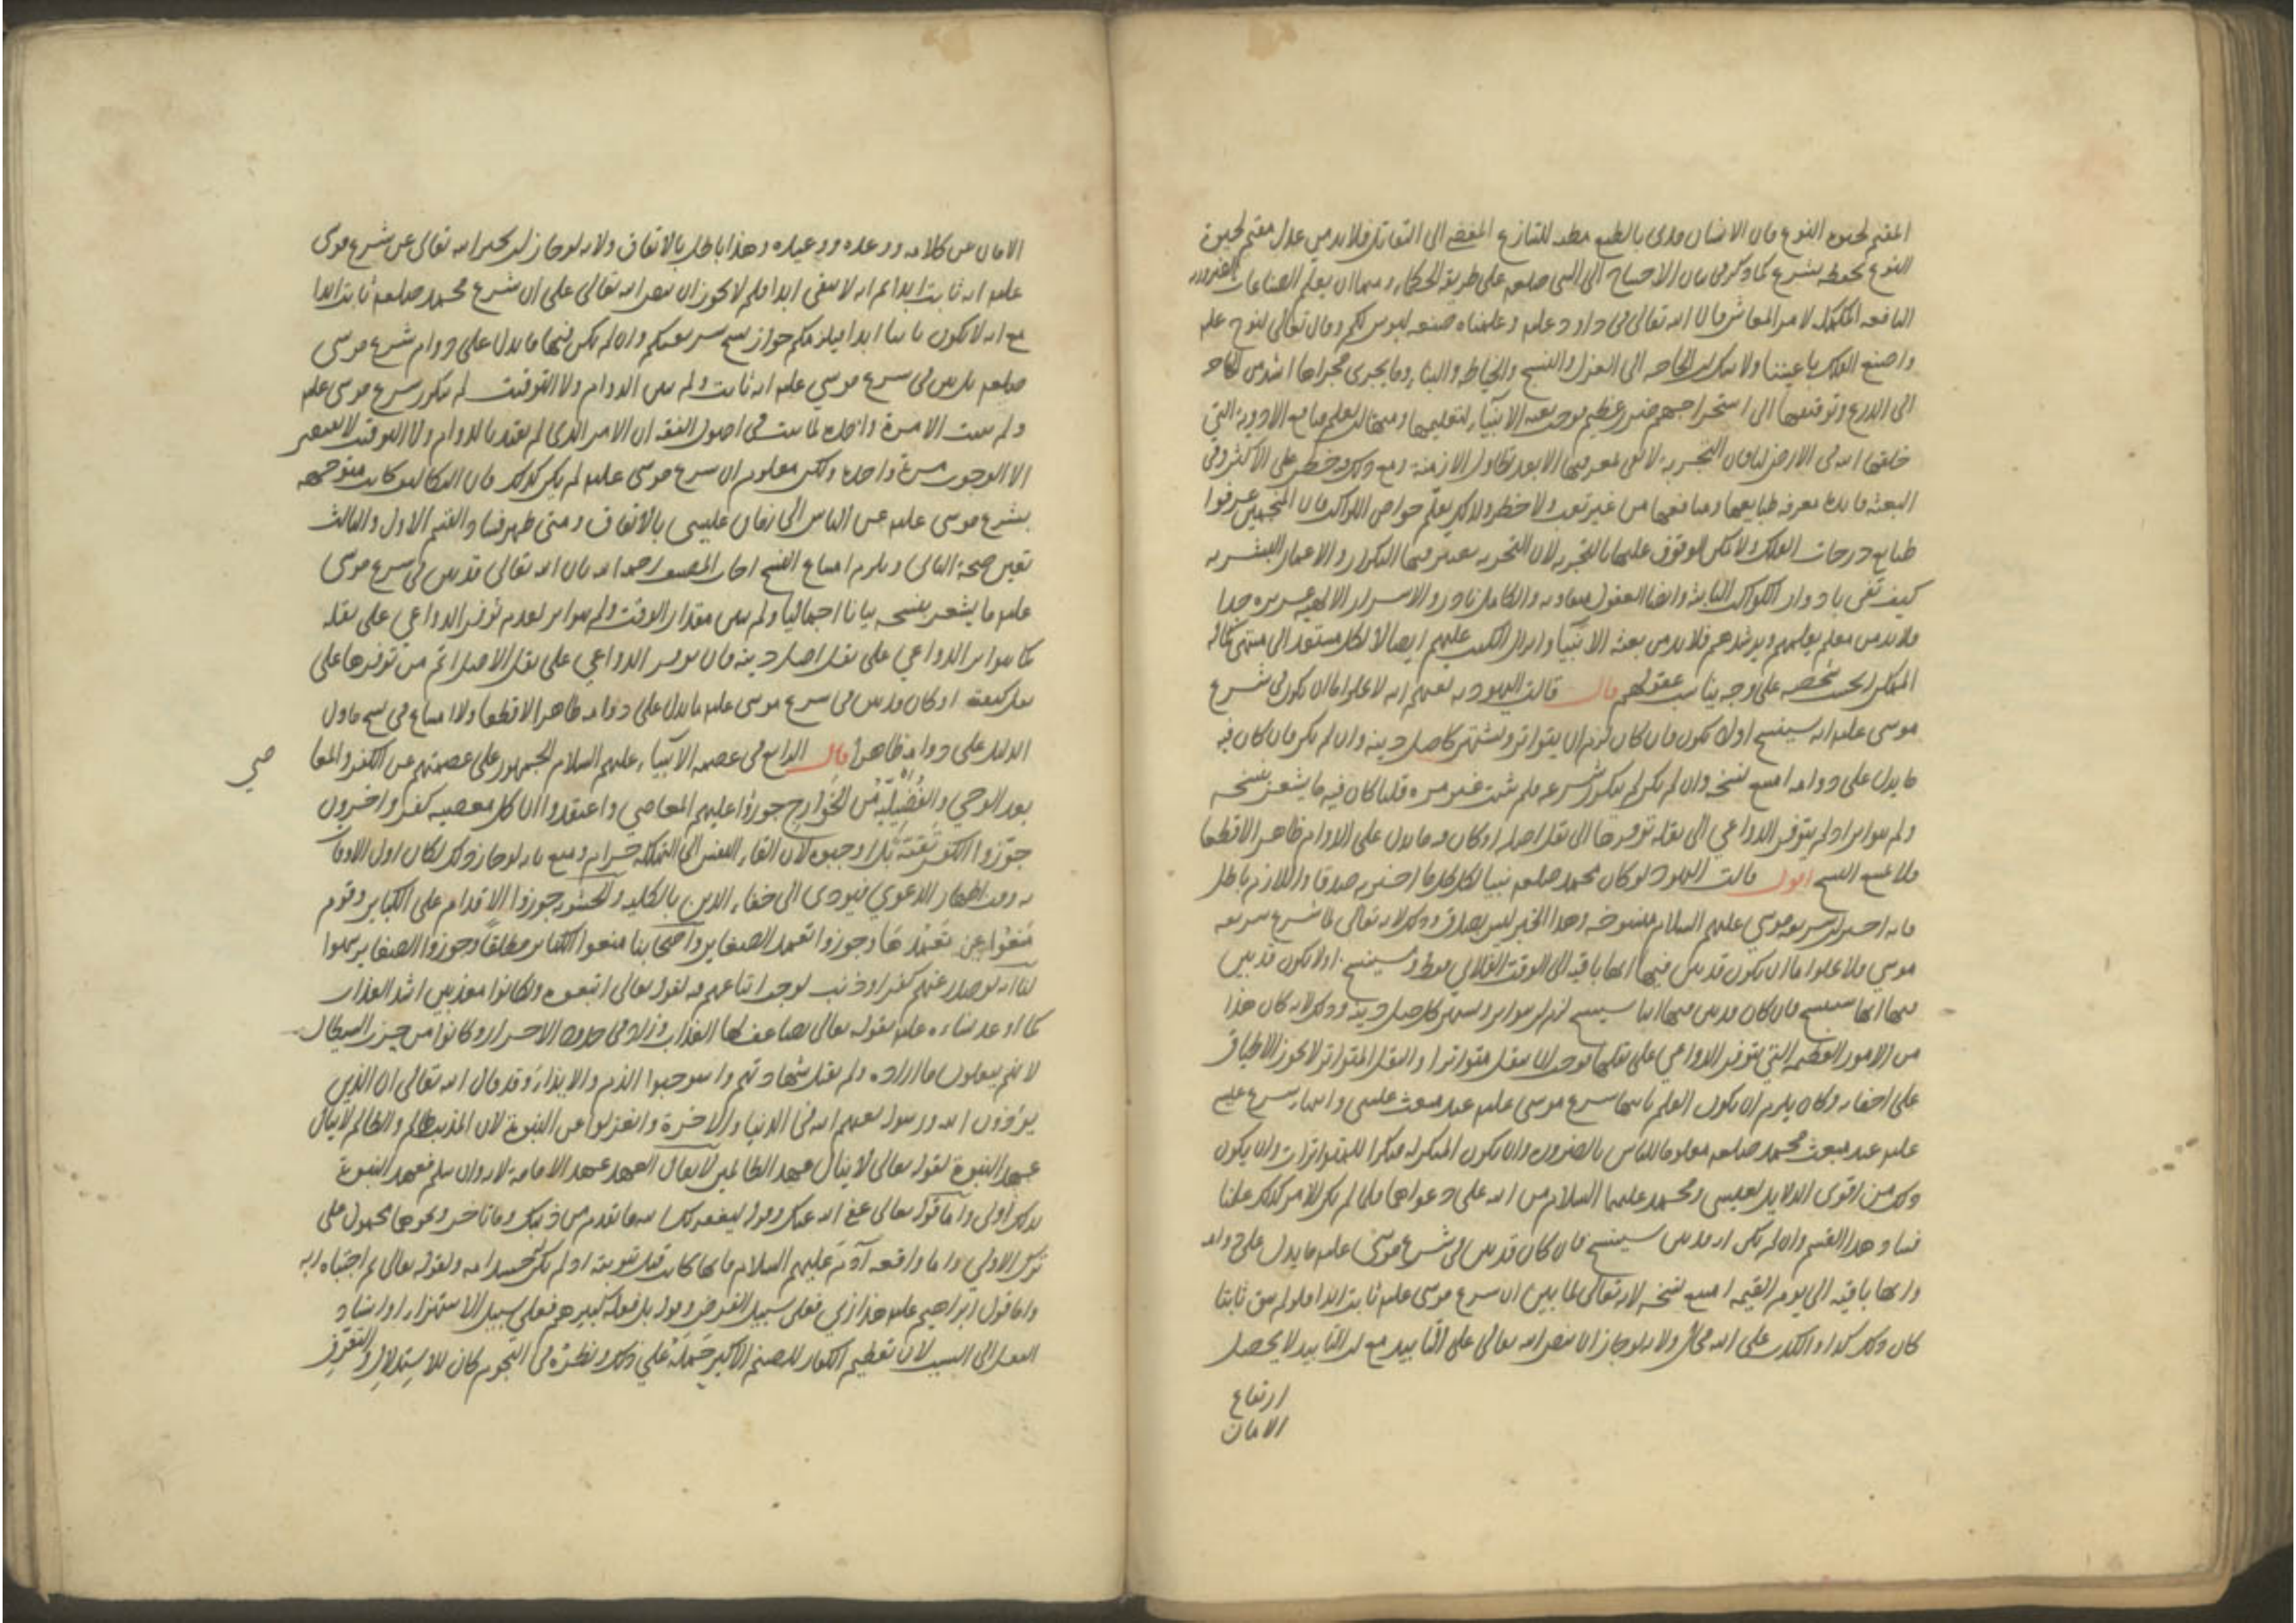 المقيم لحيوة النوع فان الانسان مدنى بالطبع مظنه للتنازع المفضى الى التقاتل فلابد من عدل مقيم لحيوة
النوع يحفظه بشرع كما ذكر فى بيان الاحتياج الى النبى صلعم على طريقة الحكماء ومنها ان يعلم الصناعات الضرورية
النافعه المكمله لامر المعاش قال الله تعالى فى داود عليه وعلمناه صنعه لبوس لكم وقال تعالى لنوح عليه
واصنع الفلك باعيننا ولا شك ان الحاجه الى الغزل والنسج والخياطه والبناء وما يجرى مجراها اشد من الحاجه
الى الدرع وتوقيفها الى استخراجهم ضرر عظيم فوجب بعثه الانبياء لتعليمها ومنها ان يعلم منافع الادوية التى
خلقها الله فى الارض لنا فان التجربه لا تفى لمعرفتها الا بعد تطاول الازمنة ومع ذلك فيه خطر على الاكثر وفى
البعثه فايده معرفه طبايعها ومنافعها من غير تعب ولا خطر وكذلك يعلم خواص الكواكب فان المنجمين عرفوا
طبايع درجات الفلك ولا يمكن الوقوف عليها بالتجربه لان التجربه يعتبر فيها التكرار والاعمار البشريه
كيف تفى بادوار الكواكب الثابته وايضا العقول متفاوته والكامل نادر والاسرار الالهيه عزيزه جدا
فلابد من معلم يعلمهم ويرشدهم فلابد من بعثه الانبيا وانزال الكتب عليهم ايصالا لكل مستعد الى منتهى كماله
الممكن له بحسب شخصه على وجه يناسب عقولهم قال قالت اليهود لعنهم الله لا يخلوا اما ان يكون فى شرع
موسى عليه انه سينسخ اولا يكون فان كان لزم ان يتواتر ويشتهر كاصل دينه وان لم يكن فان كان فيه
ما يدل على دوامه امتنع نسخه وان لم يكن لم يتكرر شرعه فلم يثبت غير مره قلنا كان فيه ما يشعر بنسخه
ولم يتواتر اذ لم يتوفر الدواعى الى نقله توفرها الى نقل اصله او كان فيه ما يدل على الدوام ظاهرا لا قطعا
فلا يمتنع النسخ اقول قالت اليهود لو كان محمد صلعم نبيا لكان كل ما اخبر به صدقا واللازم باطل
فانه اخبر ان شريعه موسى عليهم السلام منسوخه وهذا الخبر ليس بصادق وذلك لانه تعالى لما شرع شريعه
موسى فلا يخلوا اما ان يكون قد بين فيها انها باقيه الى الوقت الفلانى فقط وسينسخ اولا يكون قد بين
فيها انها سينسخ فان كان قد بين فيها انها سينسخ لزم ان يتواتر ويشتهر كاصل دينه وذلك لانه كان هذا
من الامور العظيمه التى يتوفر الدواعى على نقلها فوجب ان ينقل متواترا والنقل المتواتر لا يجوز الاطباق
على اخفائه وكان يلزم ان يكون العلم بانتها شرع موسى عليه عند مبعث عيسى وانتهاء شرع عيسى
عليه عند مبعث محمد صلعم معلوما للناس بالضروره وان يكون المنكر له منكرا للمتواترات وان يكون
ذلك من اقوى الدلايل لعيسى ومحمد عليهما السلام من الله على دعواهما فلما لم يكن الامر كذلك علمنا
فساد هذا القسم وان لم يكن انه قد بين سينسخ فان كان قد بين فى شرع موسى عليه ما يدل على دوامه
وانها باقيه الى يوم القيمه امتنع نسخه لانه تعالى لما بين ان شرع موسى عليه ثابت ابدا فلو لم يبق ثابتا
كان ذلك كذبا والكذب على الله محال ولانه لو جاز ان ينص الله تعالى على التابيد مع ان التابيد لا يحصل
ارتفاع
الامان
الامان عن كلامه ووعده ووعيده وهذا باطل بالاتفاق ولانه لو جاز ان يخبر الله تعالى عن شرع موسى
عليه انه ثابت ابدا ثم انه لا يبقى ابدا فلم لا يجوز ان ينص الله تعالى على ان شرع محمد صلعم ثابت ابدا
مع انه لا يكون ثابتا ابدا فيلزمكم جواز نسخ شريعتكم وان لم يكن فيها ما يدل على دوام شرع موسى
صلعم بل بين فى شرع موسى عليه انه ثابت ولم يبين الدوام ولا التوقيت لم يتكرر شرع موسى عليه
ولم يثبت الا مرة واحدة لما ثبت فى اصول الفقه ان الامر الذى لم يقيد بالدوام ولا التوقيت لا يقتضى
الا الوجوب مرة واحدة ولكن معلوم ان شرع موسى عليه لم يكن كذلك فان التكاليف كانت متوجهه
بشرع موسى عليه عن الناس الى زمان عيسى بالاتفاق ومتى ظهر فساد القسم الاول والثالث
تعين صحة الثانى ويلزم امتناع النسخ اجاب المصنف رحمه الله بان الله تعالى قد بين فى شرع موسى
عليه ما يشعر بنسخه بيانا اجماليا ولم يبين مقدار الوقت ولم يتواتر لعدم توفر الدواعى على نقله
كما يتواتر الدواعى على نقل اصل دينه فان توفر الدواعى على نقل الاصل اتم من توفرها على
نقل كيفيته او كان قد بين فى شرع موسى عليه ما يدل على دوامه ظاهرا لا قطعا ولا امتناع فى نسخ ما دل
الدليل على دوامه ظاهرا قال الرابع فى عصمه الانبياء عليهم السلام الجمهور على عصمتهم عن الكفر والمعا
صى
بعد الوحى والفضيلية من الخوارج جوزوا عليهم المعاصى واعتقدوا ان كل معصيه كفر واخرون
جوزوا الكفر تقية بل اوجبوه لان القاء النفس الى التهلكه حرام ومنع بانه لو جاز ذلك لكان اولى الاوقات
به وقت اظهار الدعوى فيودى الى خفاء الدين بالكليه والحشويه جوزوا الاقدام على الكباير وقوم
منعوا عن تعمدها وجوزوا تعمد الصغاير واصحابنا منعوا الكباير مطلقا وجوزوا الصغاير سهوا
لنا انه لو صدر عنهم كفر او ذنب لوجب اتباعهم فيه لقوله تعالى اتبعوه ولكانوا معذبين اشد العذاب
كما اوعد نساءه عليه بقوله تعالى يضاعف لها العذاب وزاد فى حدود الاحرار وكانوا من حزب الشيطان
لانهم يفعلون ما اراده ولم تقبل شهادتهم واستوجبوا الذم والايذاء وقد قال الله تعالى ان الذين
يوذون الله ورسوله لعنهم الله فى الدنيا والاخرة وانعزلوا عن النبوة لان المذنب ظالم والظالم لا ينال
عهد النبوة لقوله تعالى لا ينال عهدى الظالمين لا يقال العهد عهد الامامة لانه وان سلم فعهد النبوة
بذلك اولى واما قوله تعالى عفى الله عنك وقوله ليغفر لك الله ما تقدم من ذنبك وما تاخر ونحوها محمول على
ترك الاولى واما واقعه آدم عليهم السلام فانها كانت قبل نبوته اذ لم يكن حينئذ امه ولقوله تعالى ثم اجتباه ربه
واما قول ابراهيم عليه هذا ربى فعلى سبيل الفرض وقوله بل فعله كبيرهم فعلى سبيل الاستهزاء او اسناد
الفعل الى السبب لان تعظيم الكفار للصنم الاكبر حمله على ذلك ونظره فى النجوم كان للاستدلال والتعرف